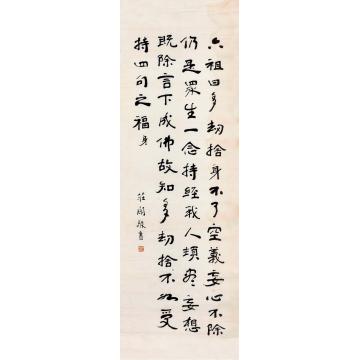 六祖曰多劫捨身不了空義妄心不除
仍是眾生一念持經我人頓盡妄想
既除言下成佛故知多劫捨不如受
持四句之福 身
莊 書